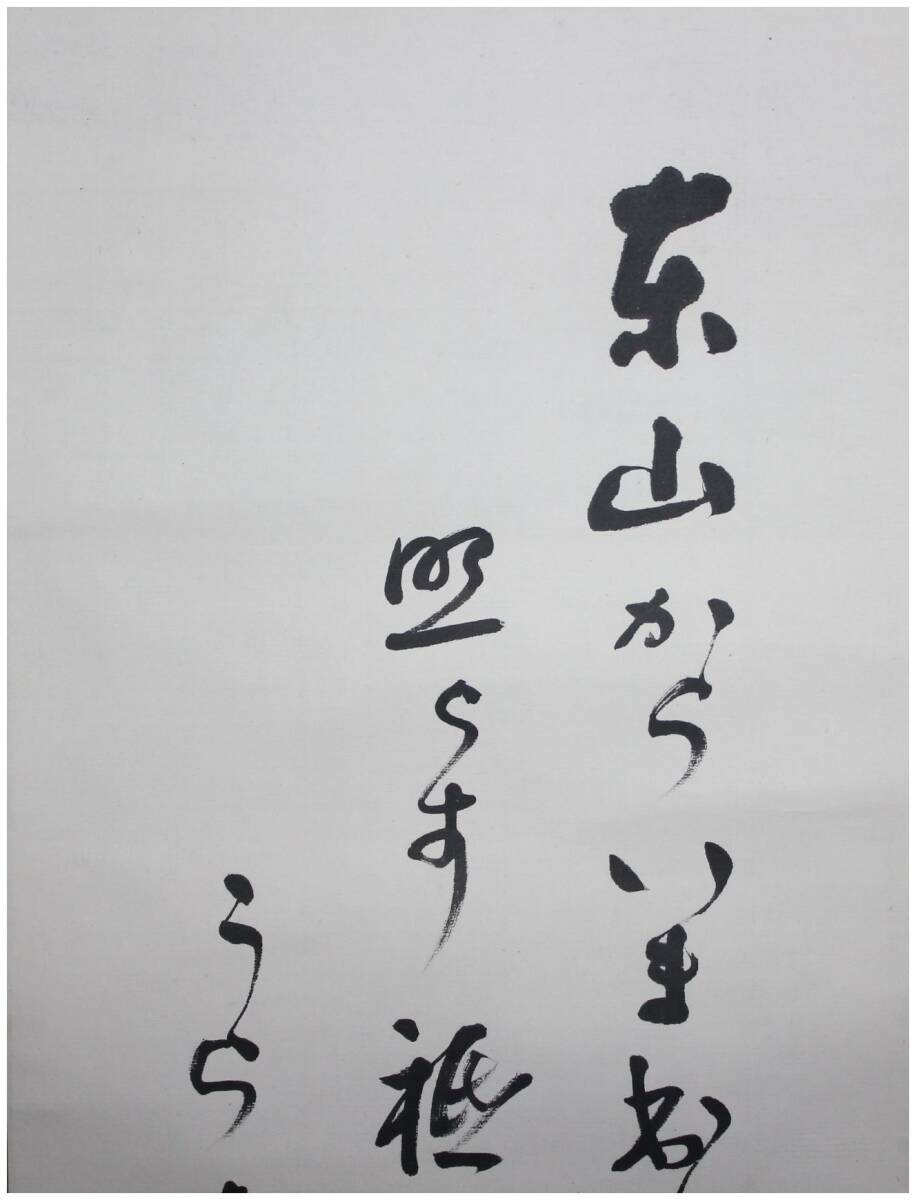 東山からいま出
照らす祇
うら